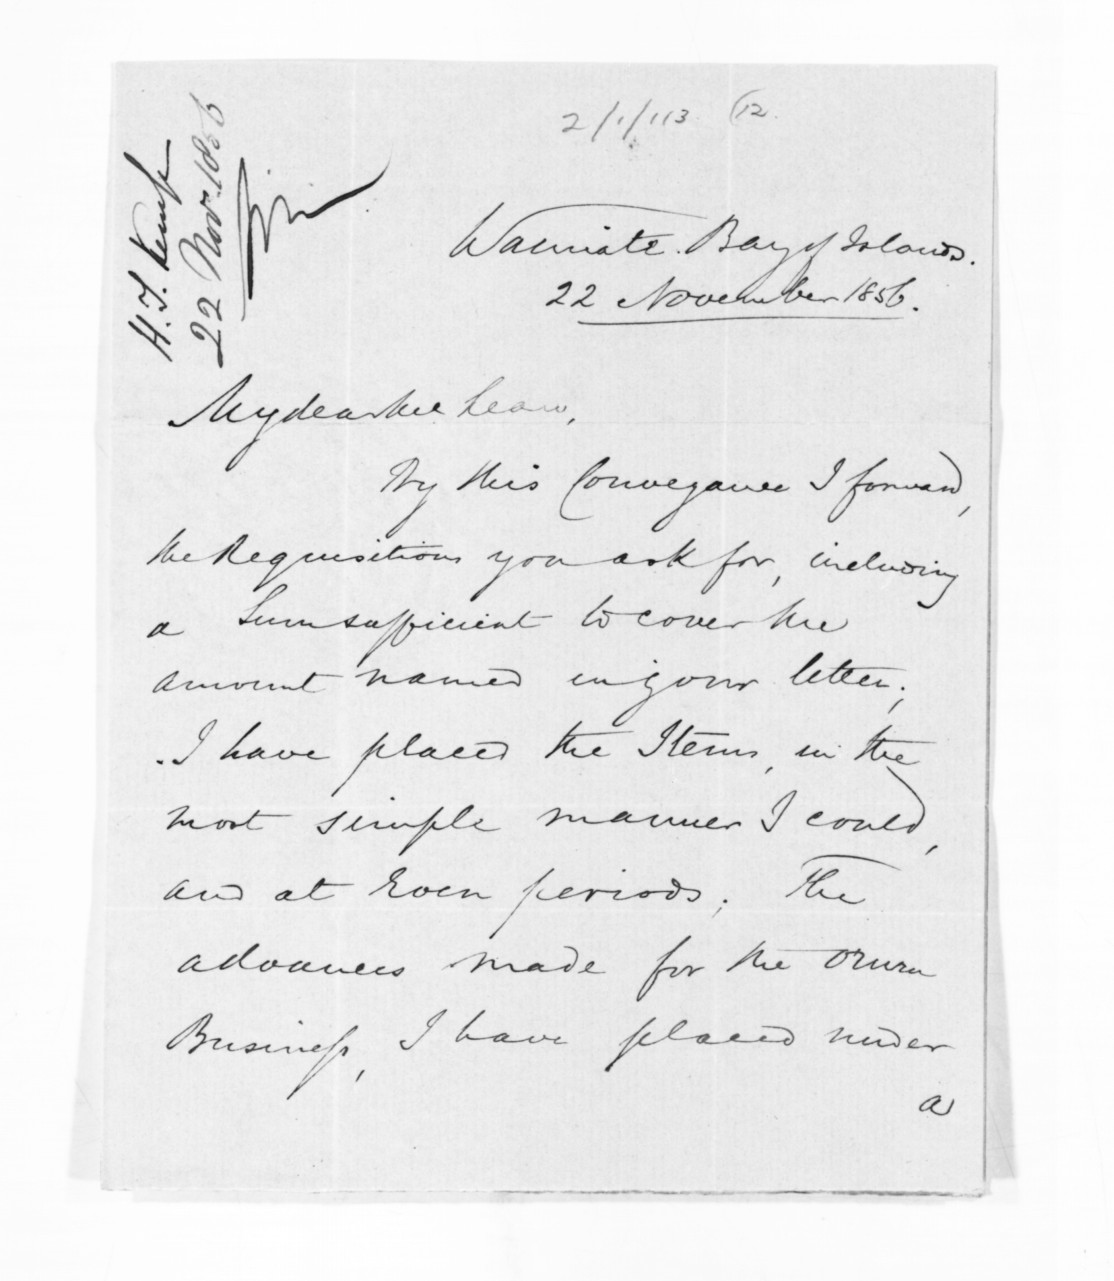 2/1/113 (12.
H. T. Kemp
22 Nov. 1856
Waimate. Bay of Islands.
22 November 1856.
My dear McLean,
By this Conveyance I forward,
the Requisitions you ask for, including
a Sum sufficient to cover the
amount named in your letter;
I have placed the Items, in the
most simple manner I could,
and at Even periods; The
advances made for the Oruru
Business, I have placed under
a